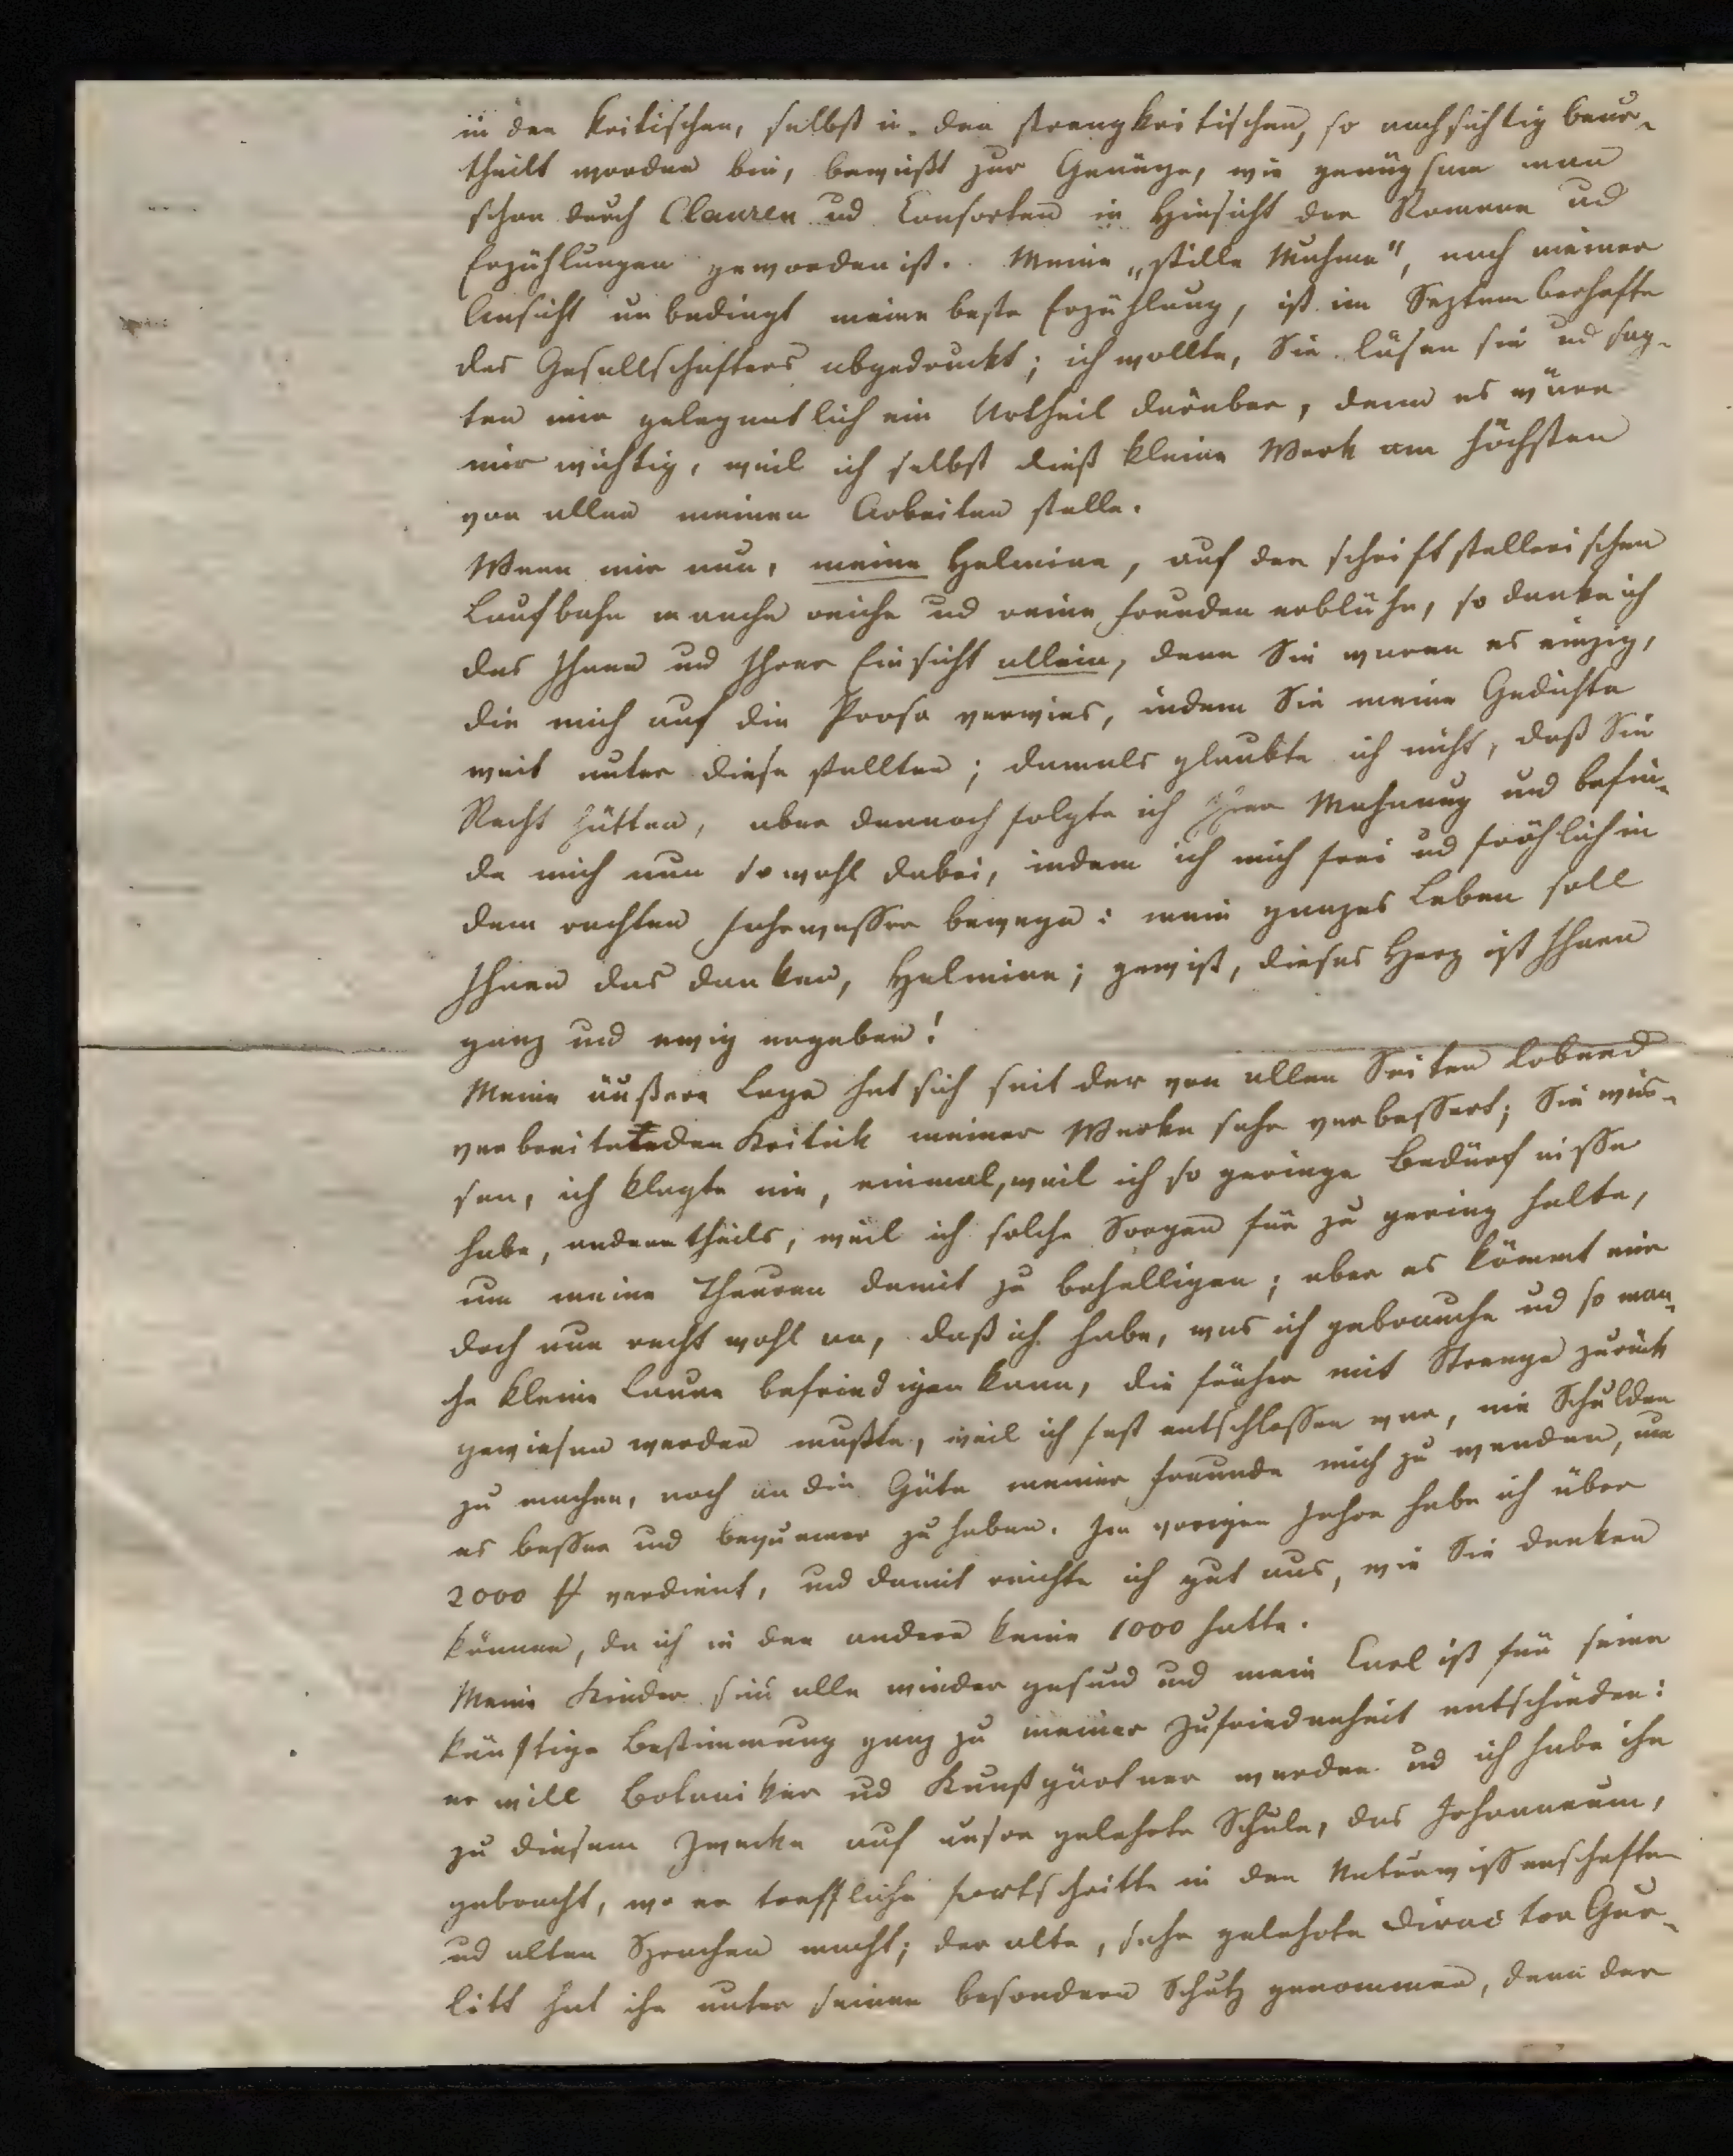 in den kritischen, selbst in den strengkritischen, so nachsichtig beur-
theilt worden bin, beweißt zur Genüge, wie genügsam man
schon durch Clauren und Consorten in Hinsicht der Romane und
Erzählungen geworden ist. Meine „stille Muhme", nach meiner
Ansicht unbedingt meine beste Erzählung, ist im Septemberhefte
des Gesellschafters abgedruckt; ich wollte, Sie läsen sie und sag-
ten mir gelegentlich ein Urtheil darüber, denn es wäre
mir wichtig, weil ich selbst dieß kleine Werk am höchsten
von allen meinen Arbeiten stelle.
Wenn mir nun, meine Helmina, auf der schriftstellerischen
Laufbahn manche reiche und reine Freuden erblühn, so danke ich
das Ihnen und Ihrer Einsicht allein, denn Sie waren es einzig,
die mich auf die Prosa verwies, indem Sie meine Gedichte
weit unter diese stellten; damals glaubte ich nicht, daß Sie
Recht hätten, aber dennoch folgte ich Ihrer Mahnung und befin-
de mich nun so wohl dabei, indem ich mich frei und fröhlich in
dem rechten Fahrwasser bewege: mein ganzes Leben soll
Ihnen das danken, Helmina; gewiß, dieses Herz ist Ihnen
ganz und ewig ergeben!
Meine äußere Lage hat sich seit der von allen Seiten lobend
verbreiteteden Kritik meiner Werke sehr verbessert; Sie wis-
sen, ich klagte nie, einmal, weil ich so geringe Bedürfnisse
habe, anderntheils, weil ich solche Sorgen für zu gering halte,
um meine Theuren damit zu behelligen; aber es kömmt mir
doch nun recht wohl an, daß ich habe, was ich gebrauche und so man-
che kleine Laune befriedigen kann, die früher mit Strenge zurück
gewiesen werden mußte, weil ich fest entschlossen war, nie Schulden
zu machen, noch an die Güte meiner Freunde mich zu wenden, um
es besser und bequemer zu haben. Im vorigen Jahre habe ich über
2000 # verdient, und damit reichte ich gut aus, wie Sie denken
können, da ich in den andern keine 1000 hatte.
Meine Kinder sind alle wieder gesund und mein Carl ist für seine
künftige Bestimmung ganz zu meiner Zufriedenheit entschieden:
er will Botaniker und Kunstgärtner werden und ich habe ihn
zu diesem Zwecke auf unsre gelehrte Schule, das Johanneum,
gebracht, wo er treffliche Fortschritte in den Naturwissenschaften
und alten Sprachen macht; der alte, sehr gelehrte Director Gur-
litt hat ihn unter seinen besondern Schutz genommen, denn der